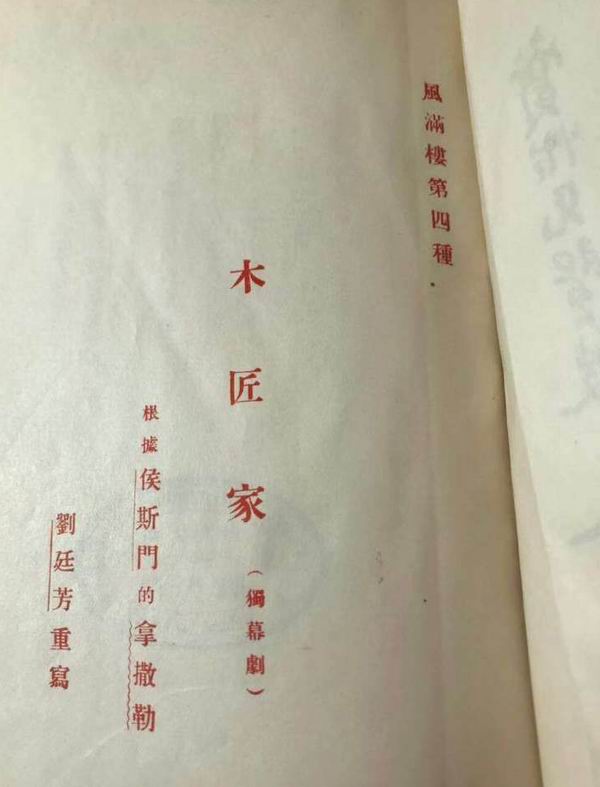 風滿樓第四種
木匠家(獨幕劇)
根據侯斯門的拿撒勒
劉廷芳重寫